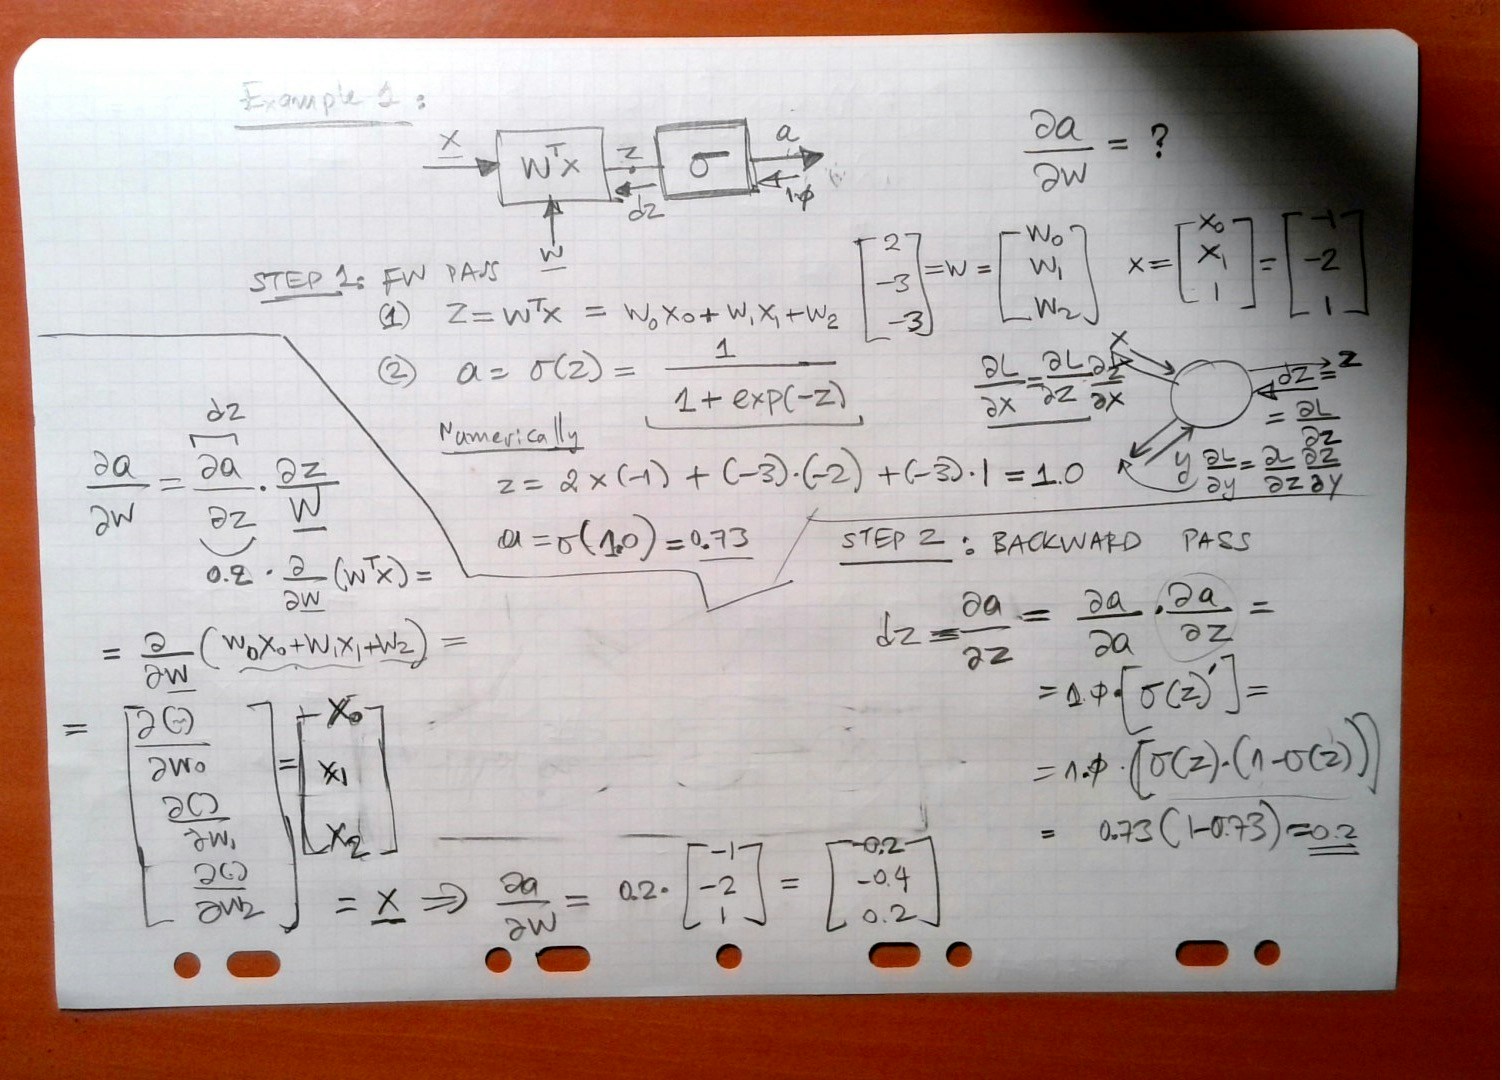 Example 1:
x
Wᵀx
z
dz
σ
a
1.0
w
∂a/∂w = ?
[2 -3 -3] = w = [w₀ w₁ w₂] x = [x₀ x₁ 1] = [-1 -2 1]
STEP 1: FW PASS
(1) z = wᵀx = w₀x₀ + w₁x₁ + w₂
(2) a = σ(z) = 1/(1 + exp(-z))
Numerically
z = 2 x (-1) + (-3)·(-2) + (-3)·1 = 1.0
a = σ(1.0) = 0.73
∂L/∂x = ∂L/∂z ∂z/∂x
x
z
dz =
= ∂L/∂z
y ∂L/∂y = ∂L/∂z ∂z/∂y
STEP 2: BACKWARD PASS
dz = ∂a/∂z = ∂a/∂a · ∂a/∂z =
= 1.0·[σ(z)'] =
= 1.0·[σ(z)·(1-σ(z))]
= 0.73(1-0.73) = 0.2
dz
∂a/∂w = ∂a/∂z · ∂z/w
0.2 · ∂/∂w (wᵀx) =
= ∂/∂w (w₀x₀+w₁x₁+w₂) =
= [∂(-)/∂w₀ ∂()/∂w₁ ∂()/∂w₂] = [x₀ x₁ x₂]
= x ⇒ ∂a/∂w = 0.2·[-1 -2 1] = [-0.2 -0.4 0.2]